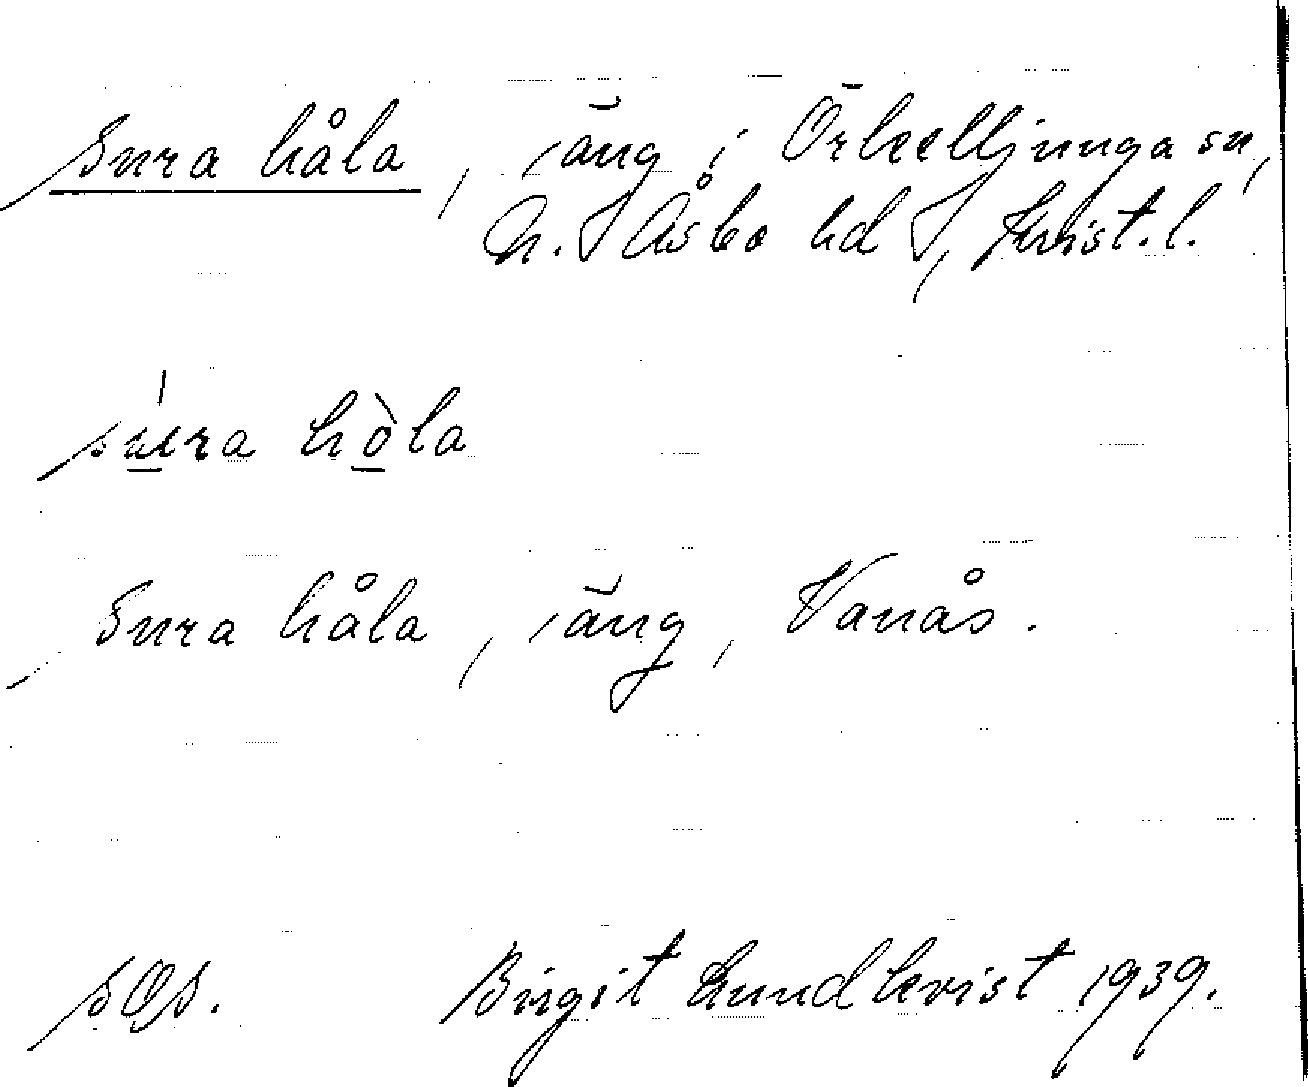 Sura håla, äng i Örkelljunga sn,
N. Åsbo hd, Krist. l.
su̲ra hò̲la
Sura håla, äng, Vanås.
Birgit Lundkvist 1939.